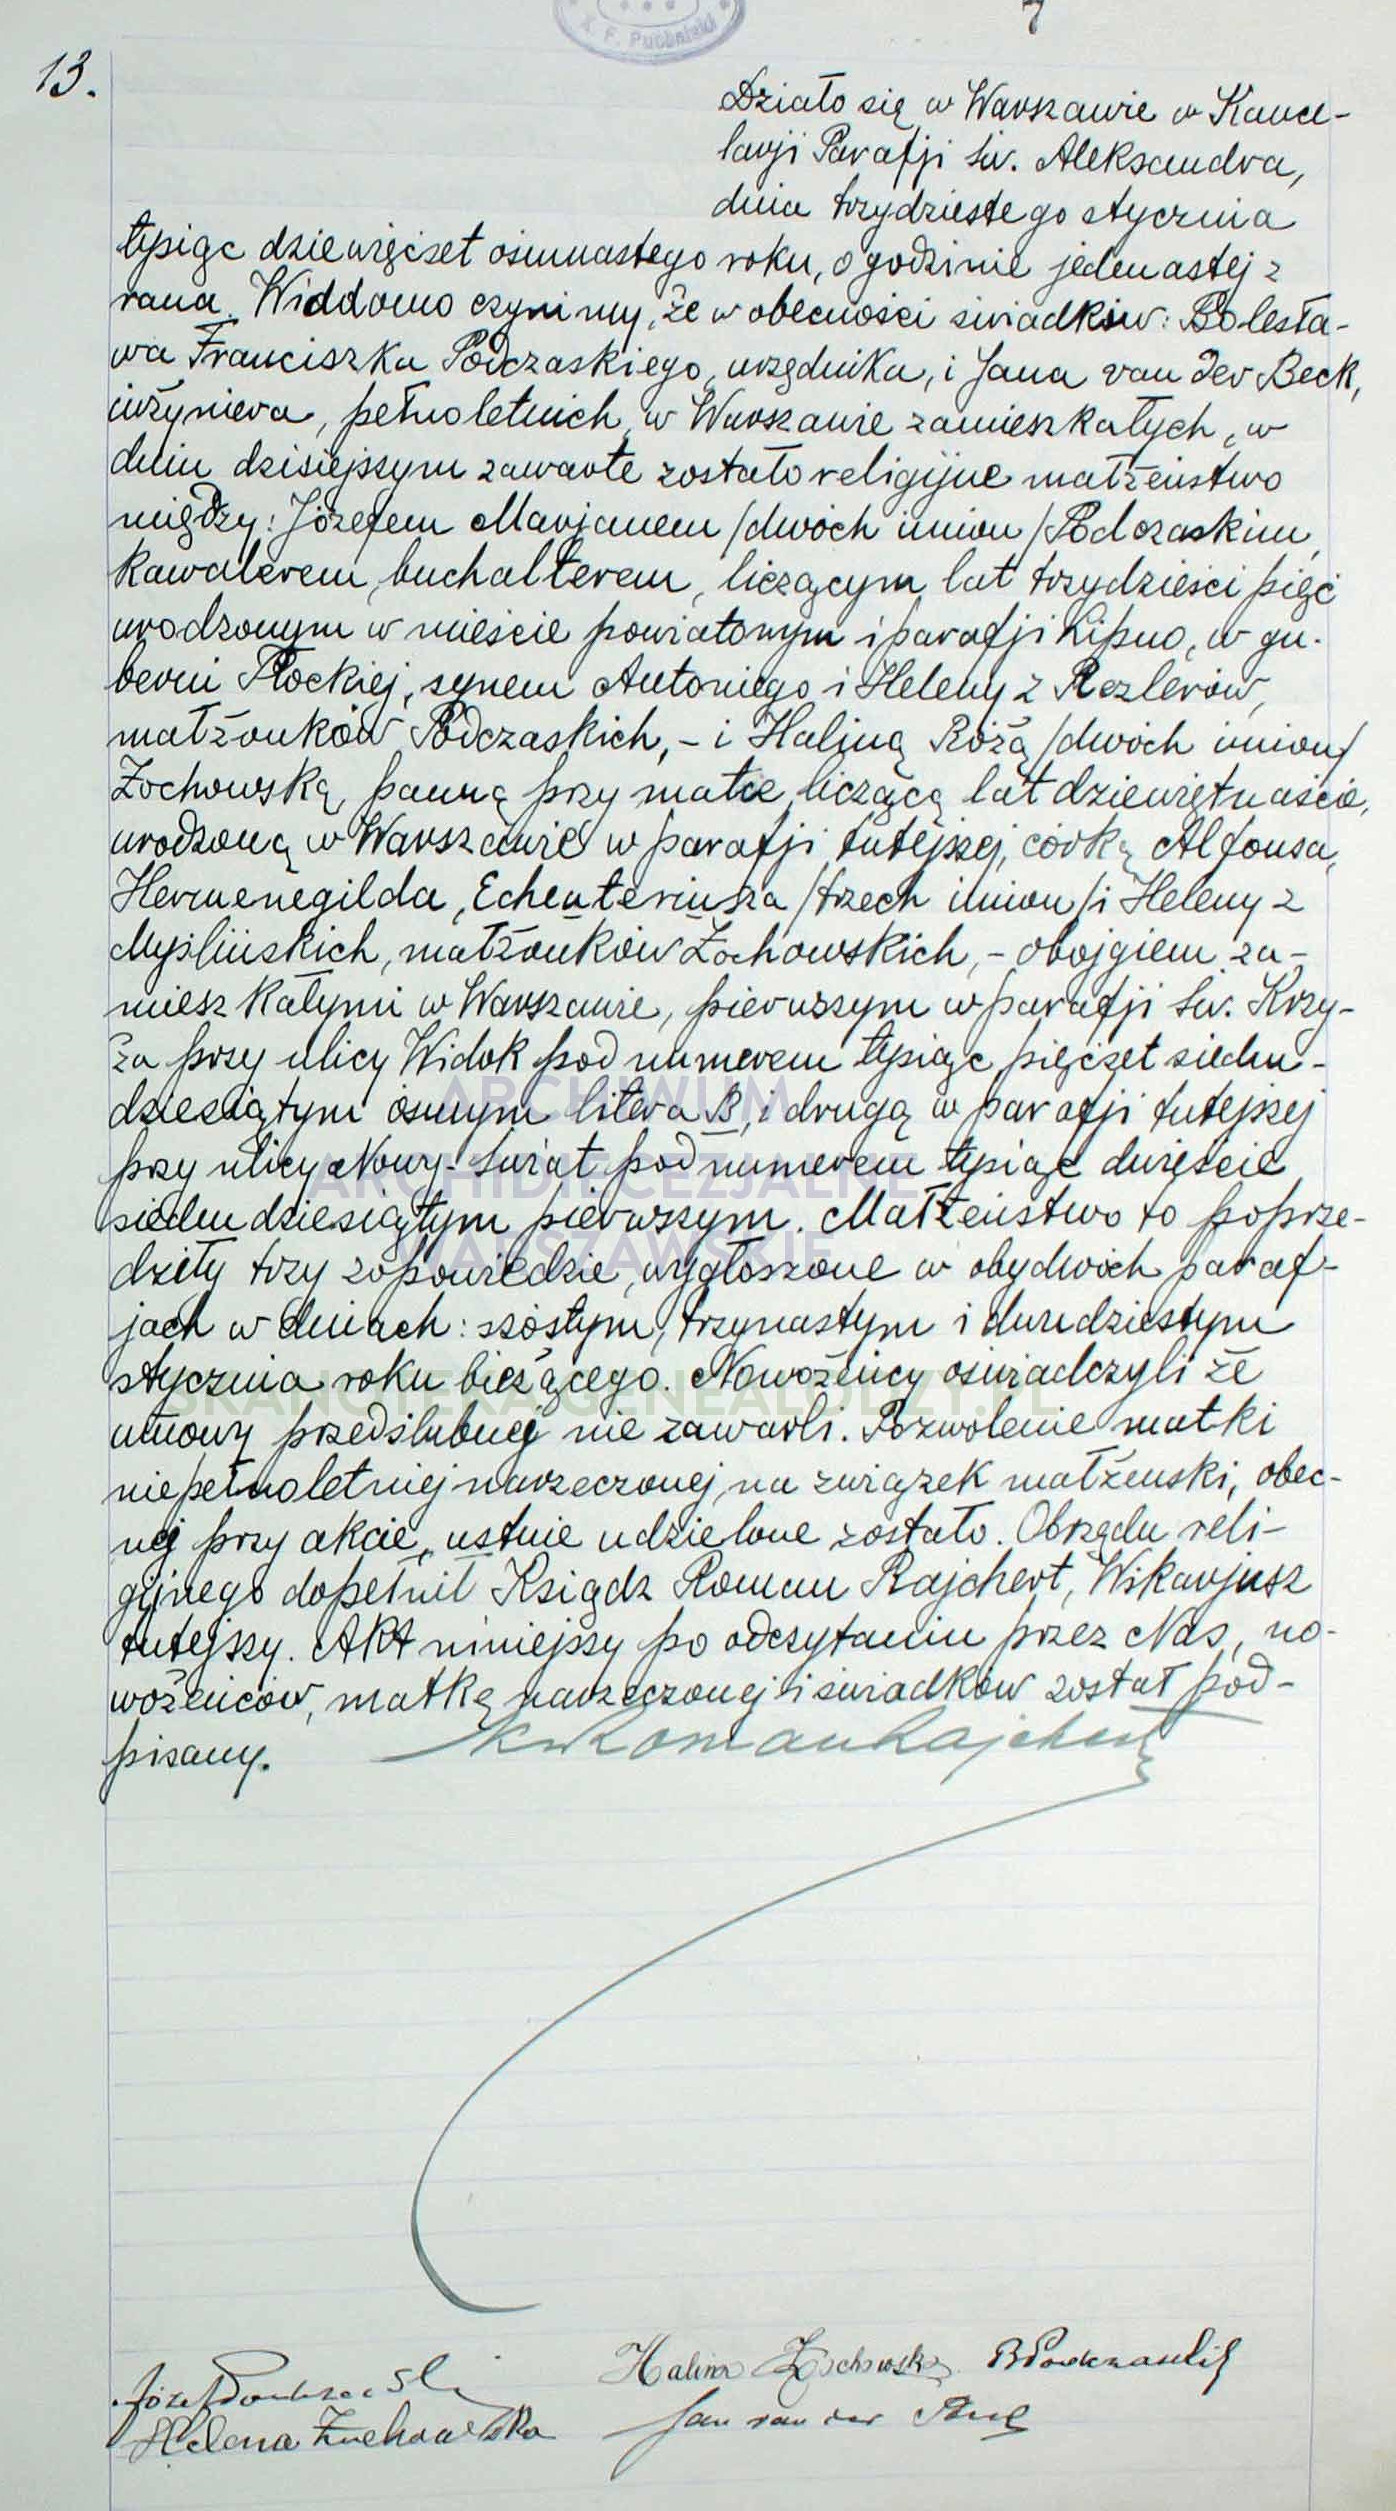 7
X. F. Puchalski
13.
Działo się w Warszawie w Kance-
larji Parafji św. Aleksandra,
dnia trzydziestego stycznia
tysiąc dziewięćset osiemnastego roku, o godzinie jedenastej z
rana. Widdomo czynimy, że w obecności świadków: Bolesła-
wa Franciszka Podczaskiego, urzędnika, i Jana van der Beck,
inżyniera, pełnoletnich, w Warszawie zamieszkałych, w
dniu dzisiejszym zawarte zostało religijne małżeństwo
między: Józefem Marjanem /dwóch imion/ Podczaskim,
Kawalerem, buchalterem, liczącym lat trzydzieści pięć
urodzonym w mieście powiatowym i parafji Lipno, w gu-
berni Płockiej, synem Antoniego i Heleny z Rezlerów,
małżonków Podczaskich, - i Haliną Różą /dwóch imion/
Żochowską, panną przy matce, liczącą lat dziewiętnaście,
urodzoną w Warszawie w parafji tutejszej, córką Alfonsa,
Hermenegilda, /trzech imion/ i Heleny z
Myślińskich, małżonków Żochowskich, - obojgiem za-
mieszkałymi w Warszawie, pierwszym w parafji św. Krzy-
ża przy ulicy Widok pod numerem tysiąc pięćset siedm-
dziesiątym ósmym litera B, i drugą w parafji tutejszej
przy ulicy Nowy-Świat pod numerem tysiąc dwieście
siedmdziesiątym pierwszym. Małżeństwo to poprze-
dziły trzy zapowiedzie, wygłoszone w obydwóch paraf-
jach w dniach: szóstym, trzynastym i dwudziestym
stycznia roku bieżącego. Nowożeńcy oświadczyli że
umowy przedślubnej nie zawarli. Pozwolenie matki
niepełnoletniej narzeczonej na związek małżeński, obec-
nej przy akcie, ustnie udzielone zostało. Obrzędu reli-
gijnego dopełnił Ksiądz Roman Rajchert, Wikarjusz
tutejszy. Akt niniejszy po odczytaniu przez Nas, no-
wożeńców, matkę narzeczonej i świadków został pod-
pisany. Ks Roman Rajchert
ARCHIWUM
ARCHIDIECEZJALNE
WARSZAWSKIE
SKANOTEKA.GENEALODZY.PL
Halina Żochowska BPodczaski
Józef Podczaski
Helena Żochowska Jan van der Beck